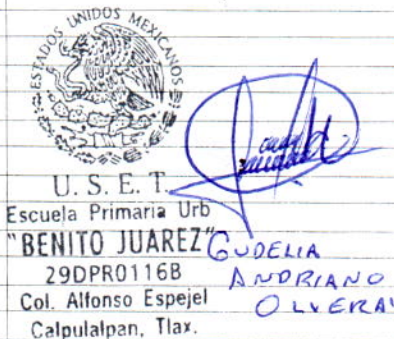 ESTADOS UNIDOS MEXICANOS
U. S. E. T.
Escuela Primaria Urb
"BENITO JUAREZ"
29DPR0116B
Col. Alfonso Espejel
Calpulalpan, Tlax.
GUDELIA
ANDRIANO
OLVERA